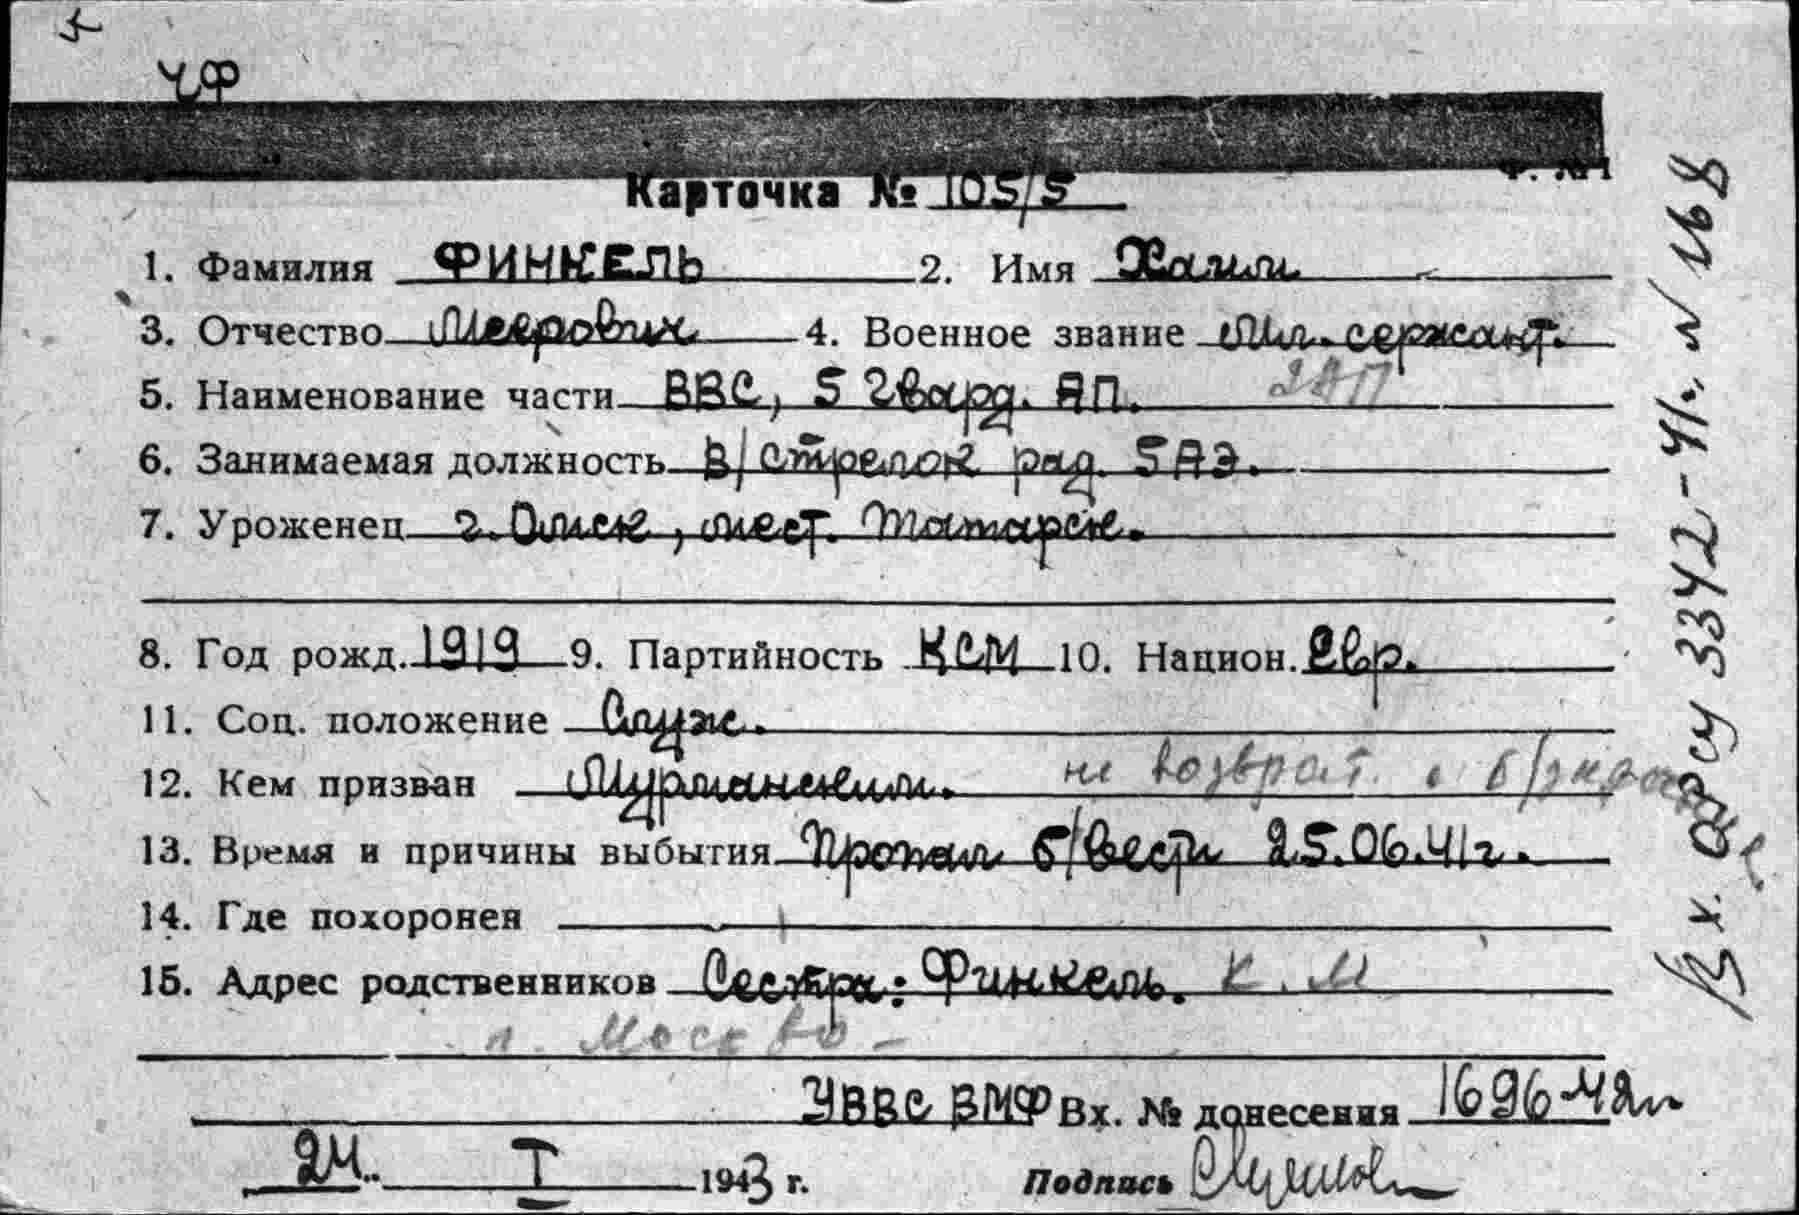 ЧФ
Карточка № 105/5
1. Фамилия ФИНКЕЛЬ 2. Имя Хаим
3. Отчество Меерович 4. Военное звание Мл. сержант.
5. Наименование части ВВС, 5 Гвард. АП. 2АП
6. Занимаемая должность В/стрелок рад. 5 АЭ.
7. Уроженец г. Омск, мест. Татарск.
8. Год рожд. 1919 9. Партийность КСМ 10. Национ. Евр.
11. Соц. положение Служ.
12. Кем призван Мурманским. не возврат. с б/задания
13. Время и причины выбытия Пропал б/вести 25.06.41г.
14. Где похоронен
15. Адрес родственников Сестра: Финкель. К. М
г. Москва -
УВВС ВМФ Вх. № донесения 1696-42г
24 I 1943 г. Подпись
Вх. ОРСУ 3342-41г. N 168